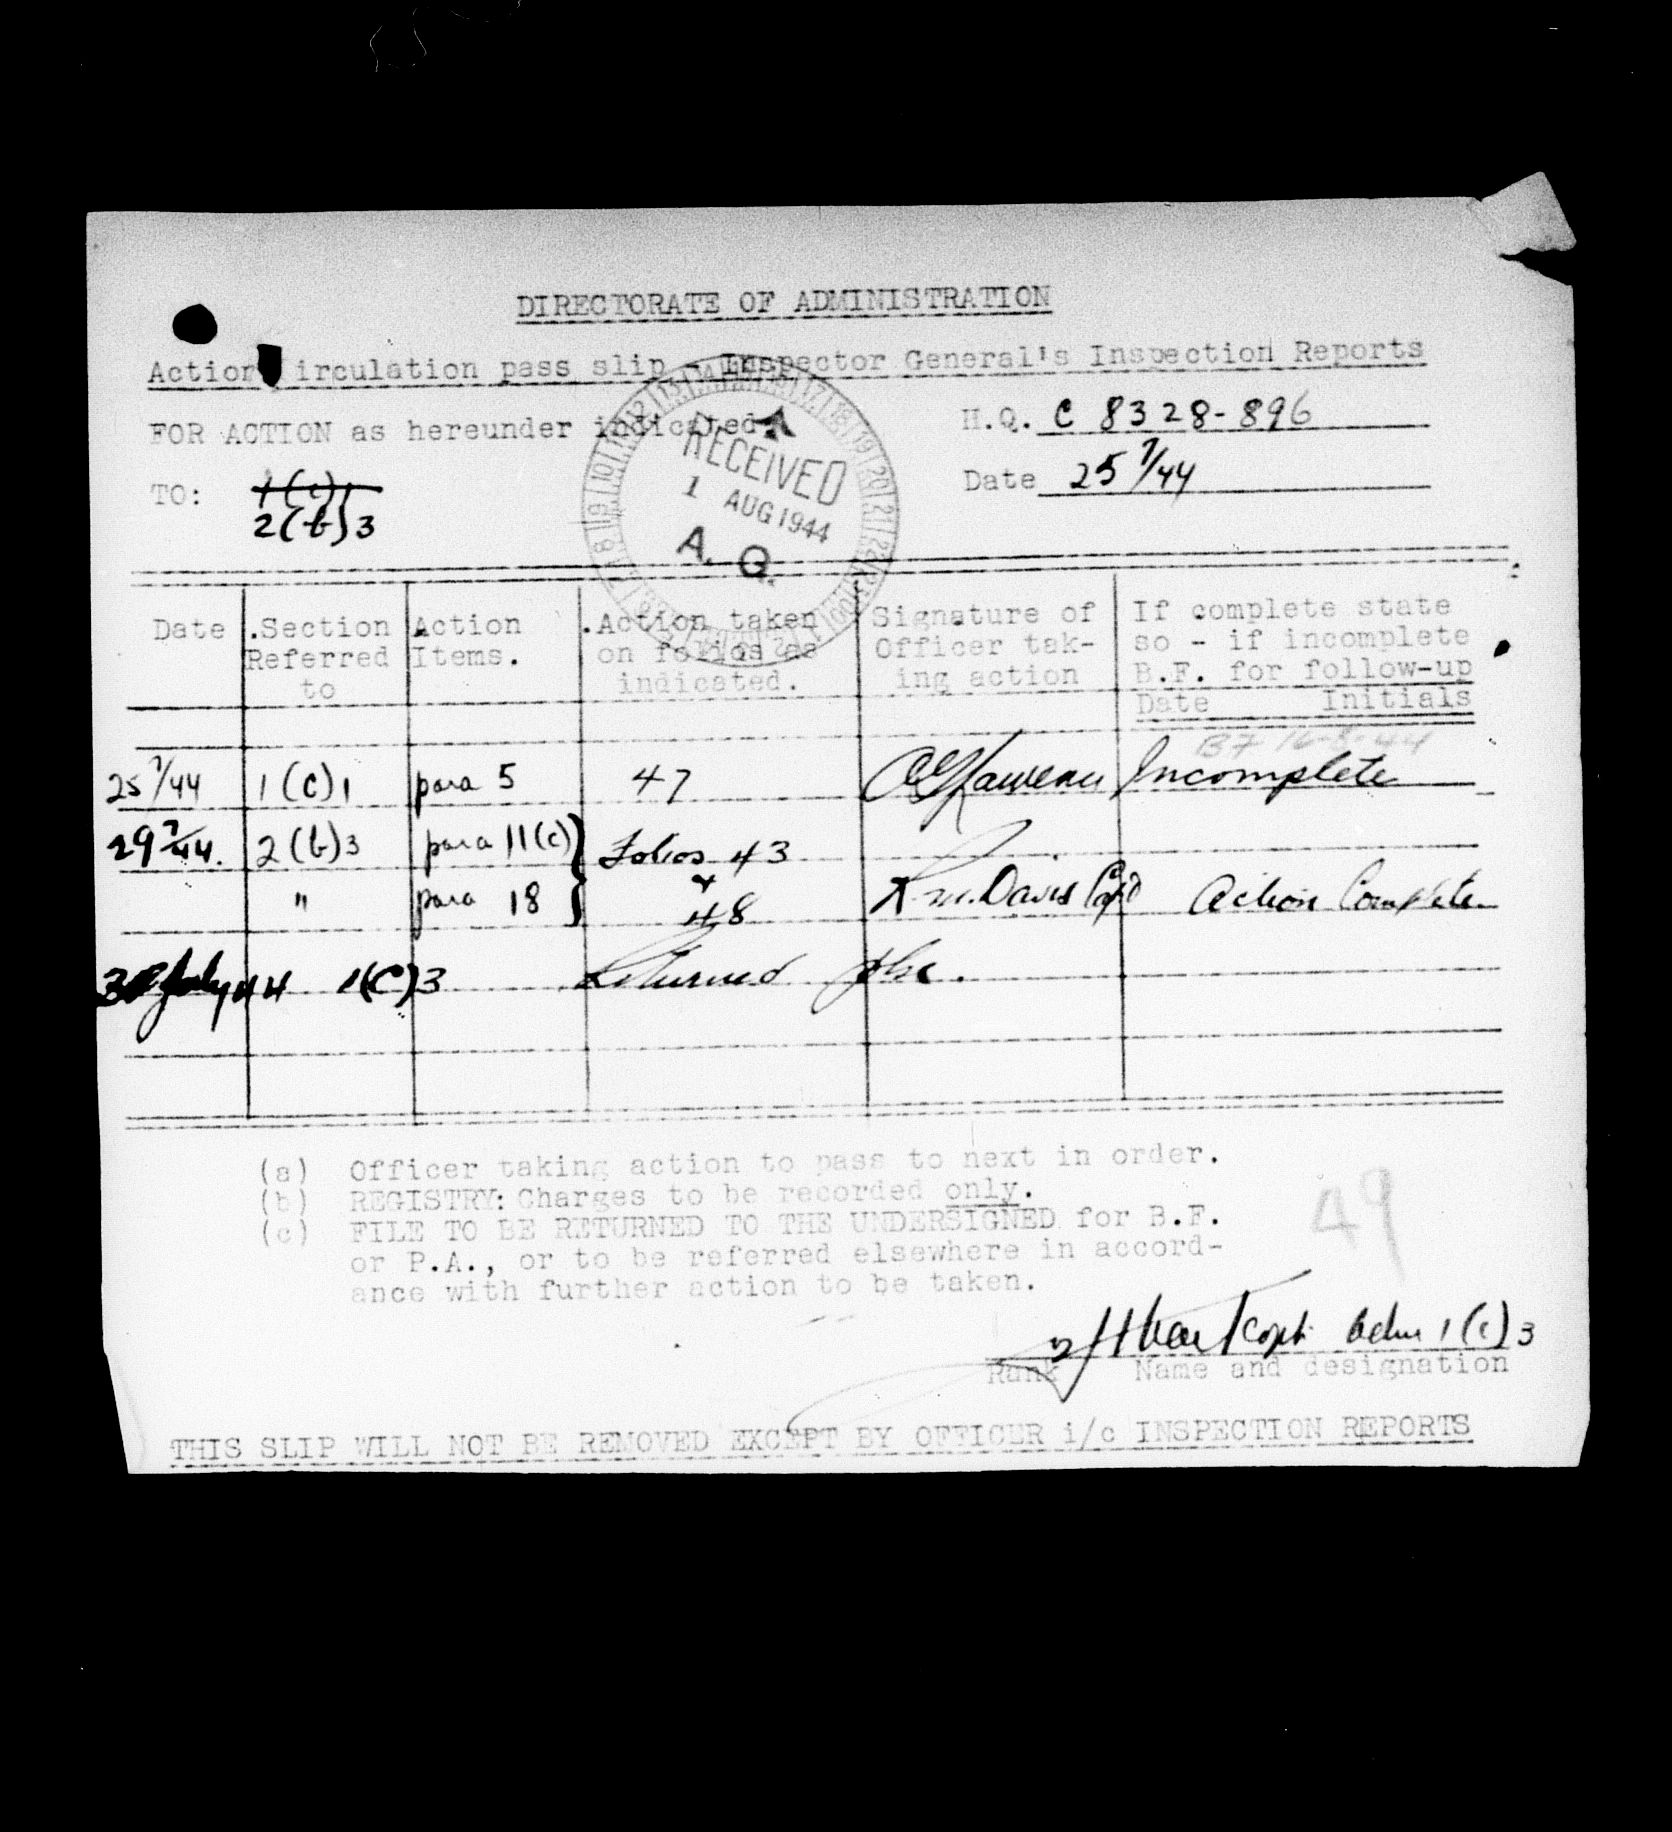 DIRECTORATE OF ADMINISTRATION
Action irculation pass slip Inspector General's Inspection Reports
FOR ACTION as hereunder indicated.
H.Q. C 8328-896
TO: 1(c)1
Date 25 7/44
2(b)3
RECEIVED
1 AUG 1944
A. G.
Date .Section Referred to
Action Items.
.Action taken on folios as indicated.
Signature of Officer tak-ing action
If complete state so - if incomplete B.F. for follow-up
Date Initials
BF 16-8-44
25 7/44 1(c)1 para 5 47 Incomplete
29 7/44. 2(b)3 para 11(c) Folios 43
" para 18 & 48 R.M. Davis Capt Action Complete
July 44 1(c)3 Returned plse.
(a) Officer taking action to pass to next in order.
(b) REGISTRY: Charges to be recorded only.
(c) FILE TO BE RETURNED TO THE UNDERSIGNED for B.F.
or P.A., or to be referred elsewhere in accord-
ance with further action to be taken.
49
Capt. Adm 1(c)3
Rank Name and designation
THIS SLIP WILL NOT BE REMOVED EXCEPT BY OFFICER i/c INSPECTION REPORTS